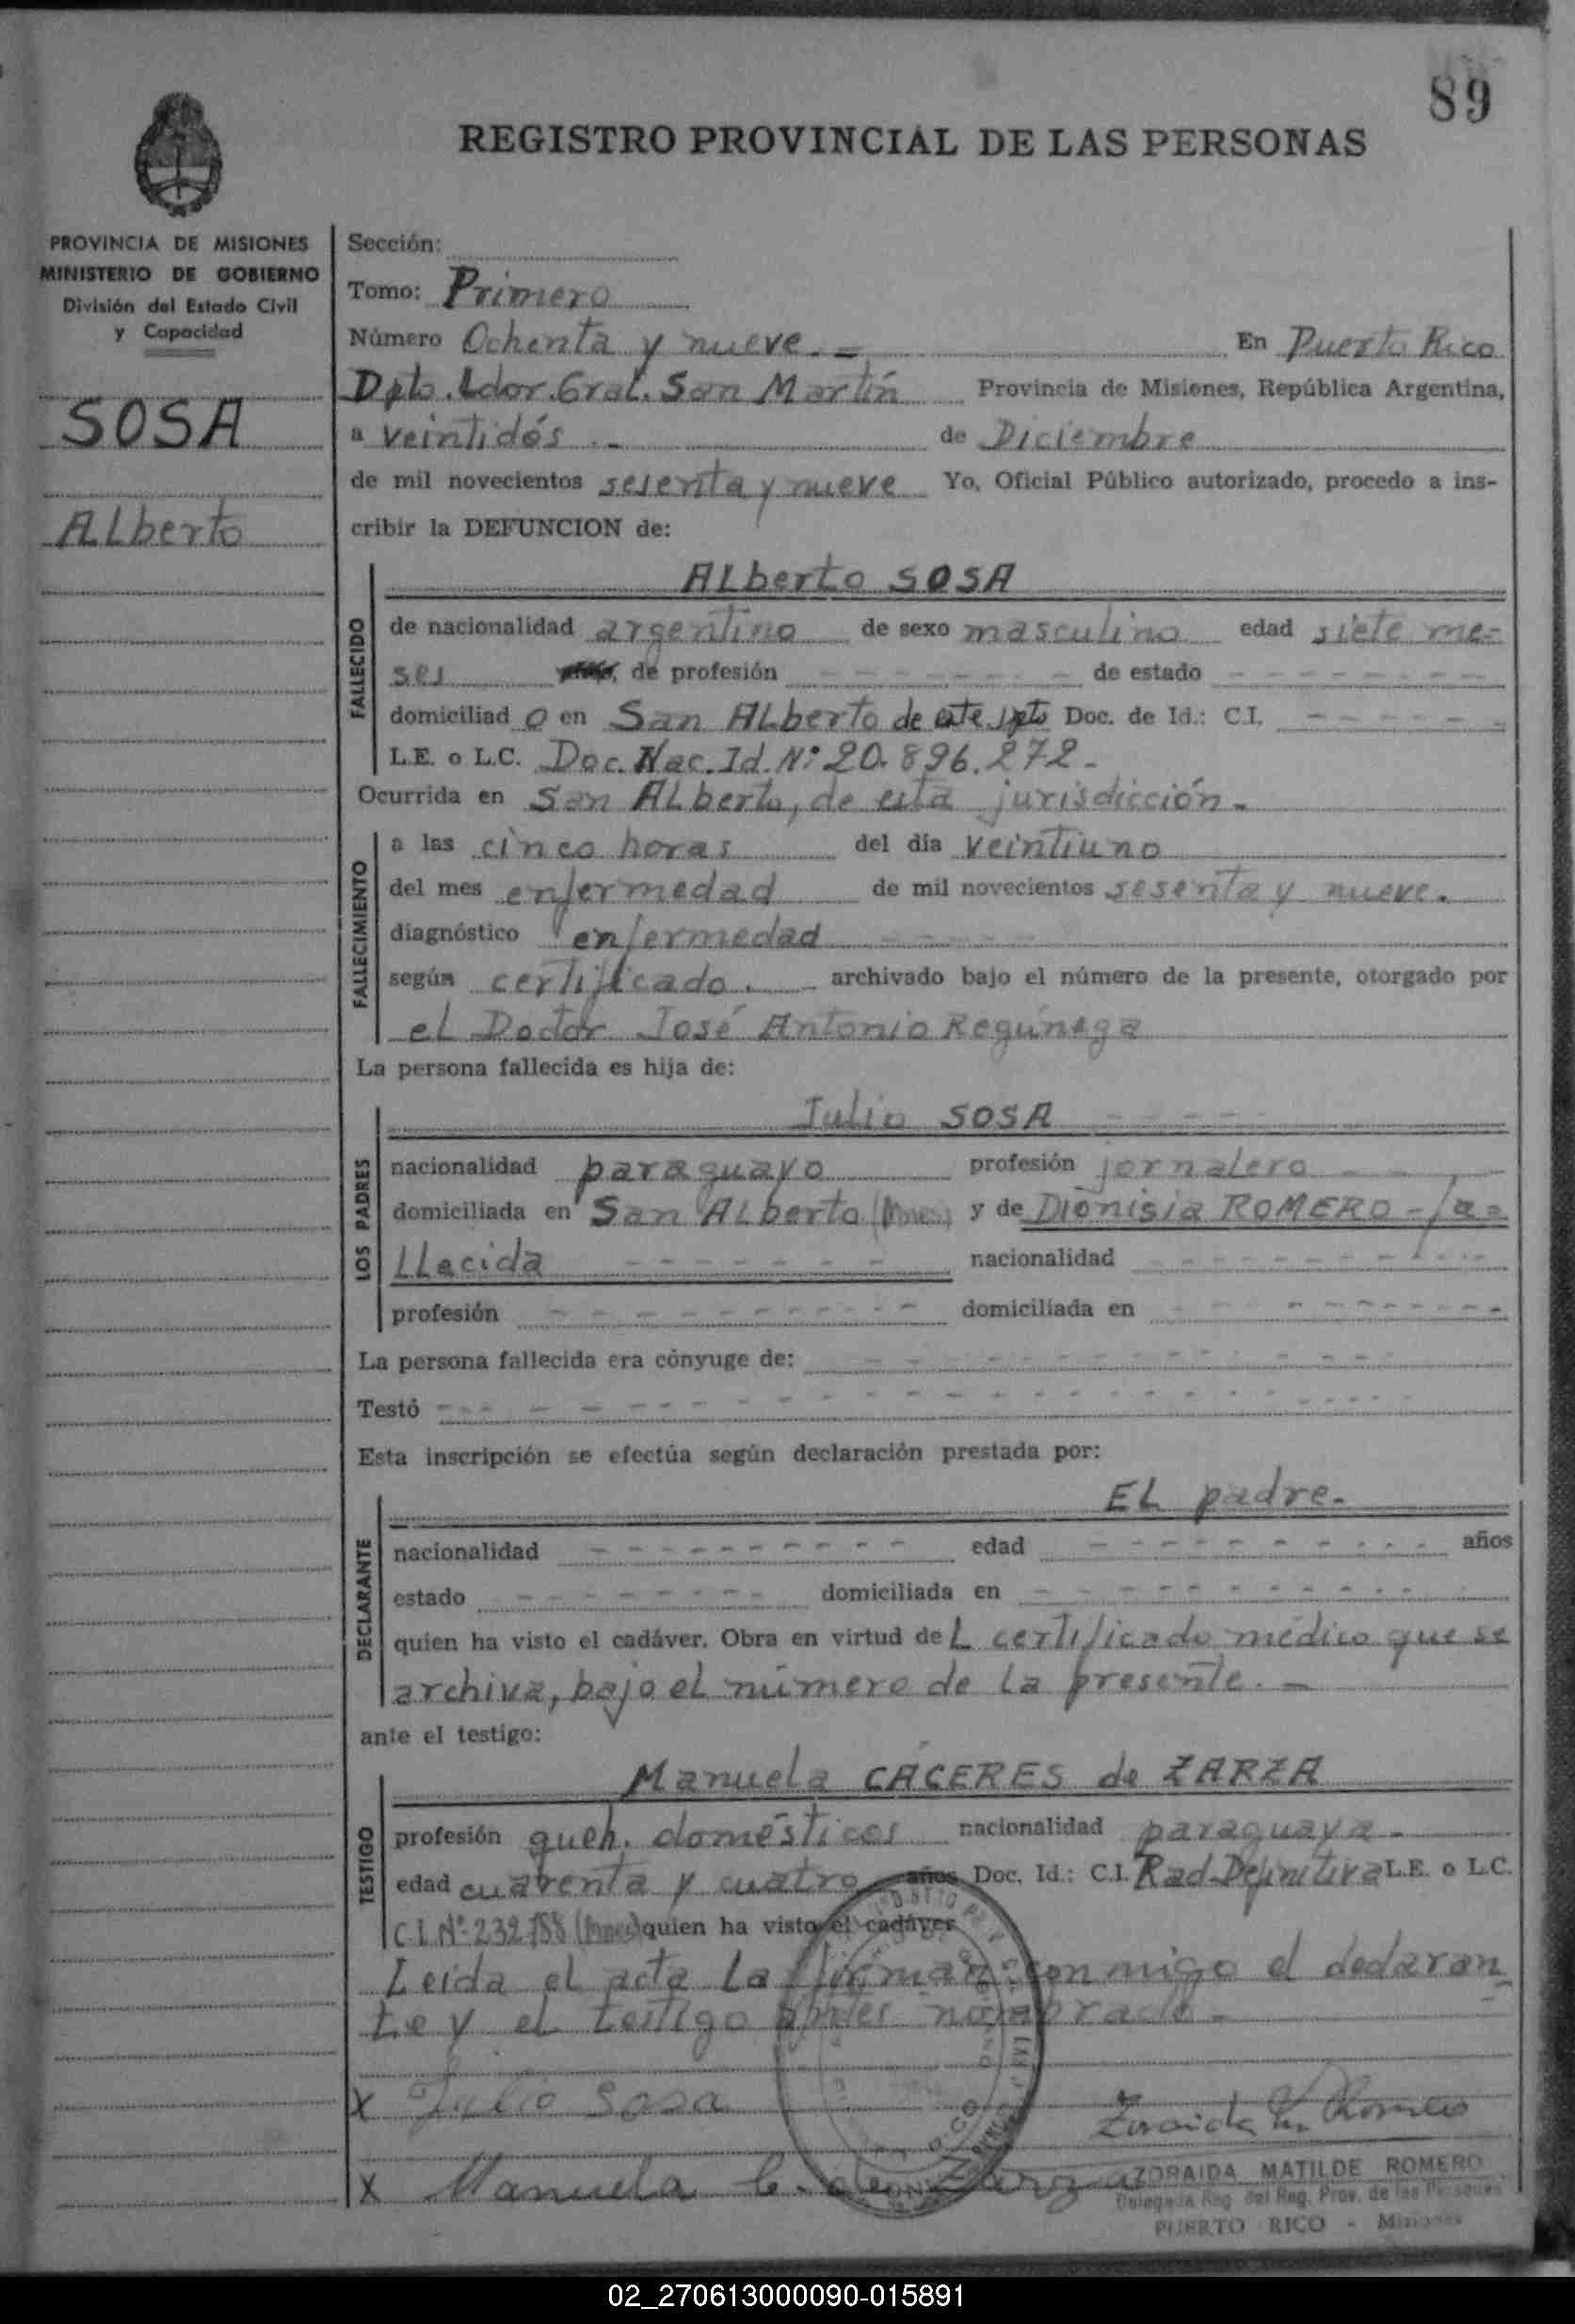 89
REGISTRO PROVINCIAL DE LAS PERSONAS
PROVINCIA DE MISIONES
MINISTERIO DE GOBIERNO
División del Estado Civil
y Capacidad
SOSA
Alberto
Sección:
Tomo: Primero
Número Ochenta y nueve.= En Puerto Rico
Dpto. Ldor. Gral. San Martín Provincia de Misiones, República Argentina,
a veintidós .- de Diciembre
de mil novecientos sesenta y nueve Yo, Oficial Público autorizado, procedo a ins-
cribir la DEFUNCION de:
Alberto SOSA
FALLECIDO
de nacionalidad argentino de sexo masculino edad siete me-
ses de profesión - - - - - - - de estado - - - - - - - -
domiciliad o en San Alberto de este Dpto Doc. de Id.: C.I. - - - - - -
L.E. o L.C. Doc. Nac. Id. N° 20.896.272-
Ocurrida en San Alberto, de esta jurisdicción-
FALLECIMIENTO
a las cinco horas del día veintiuno
del mes enfermedad de mil novecientos sesenta y nueve.
diagnóstico enfermedad - - - -
según certificado. - archivado bajo el número de la presente, otorgado por
el Doctor José Antonio Regúnaga
La persona fallecida es hija de:
LOS PADRES
Julio SOSA - - - - -
nacionalidad paraguayo profesión jornalero - -
domiciliada en San Alberto (Mnes) y de Dionisia ROMERO - fa=
llecida - - - - - - - nacionalidad - - - - - - - - - -
profesión - - - - - - - - - - domiciliada en - - - - - - - - - -
La persona fallecida era cónyuge de: - - - - - - - - - - - -
Testó - - - - - - - - - - - - - - - - - - - -
Esta inscripción se efectúa según declaración prestada por:
DECLARANTE
El padre-
nacionalidad - - - - - - - - - - edad - - - - - - - - - - años
estado - - - - - - - domiciliada en - - - - - - - - - - -
quien ha visto el cadáver. Obra en virtud de l certificado médico que se
archiva, bajo el número de la presente. -
ante el testigo:
TESTIGO
Manuela CÁCERES de ZARZA
profesión queh. domésticos nacionalidad paraguaya-
edad cuarenta y cuatro años Doc. Id.: C.I. Rad. Definitiva L.E. o L.C.
C.I. N° 232.788 (Mnes) quien ha visto el cadáver
Leída el acta la firman conmigo el declaran
te y el testigo antes nombrado-
X Julio Sosa
X Manuela C. de Zarza
ZORAIDA MATILDE ROMERO
Delegada Reg. del Reg. Prov. de las Personas
PUERTO RICO - Misiones
02_270613000090-015891